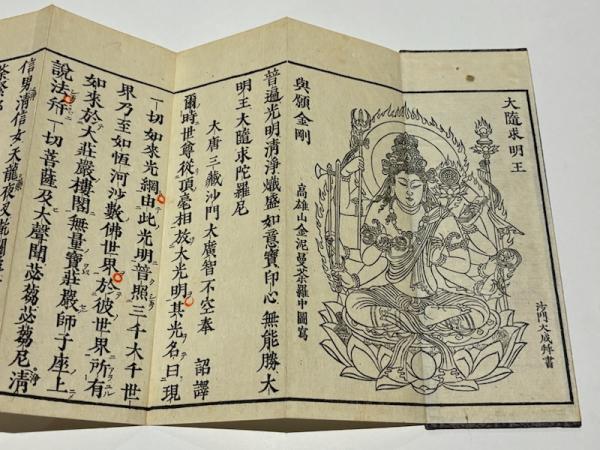 大隨求明王
沙門大成拜書
與願金剛
高雄山金泥曼荼羅中圖寫
普遍光明清淨熾盛如意寶印心無能勝大
明王大隨求陀羅尼
大唐三藏沙門大廣智不空奉 詔譯
爾時世尊從頂毫相放大光明其光名曰現
一切如來光網由此光明普照三千大千世
界乃至如恒河沙數佛世界於彼世界所有
如來於大莊嚴樓閣無量寶莊嚴師子座上
說法并一切菩薩及大聲聞苾蒭苾蒭尼淸
信男淸信女天龍夜叉